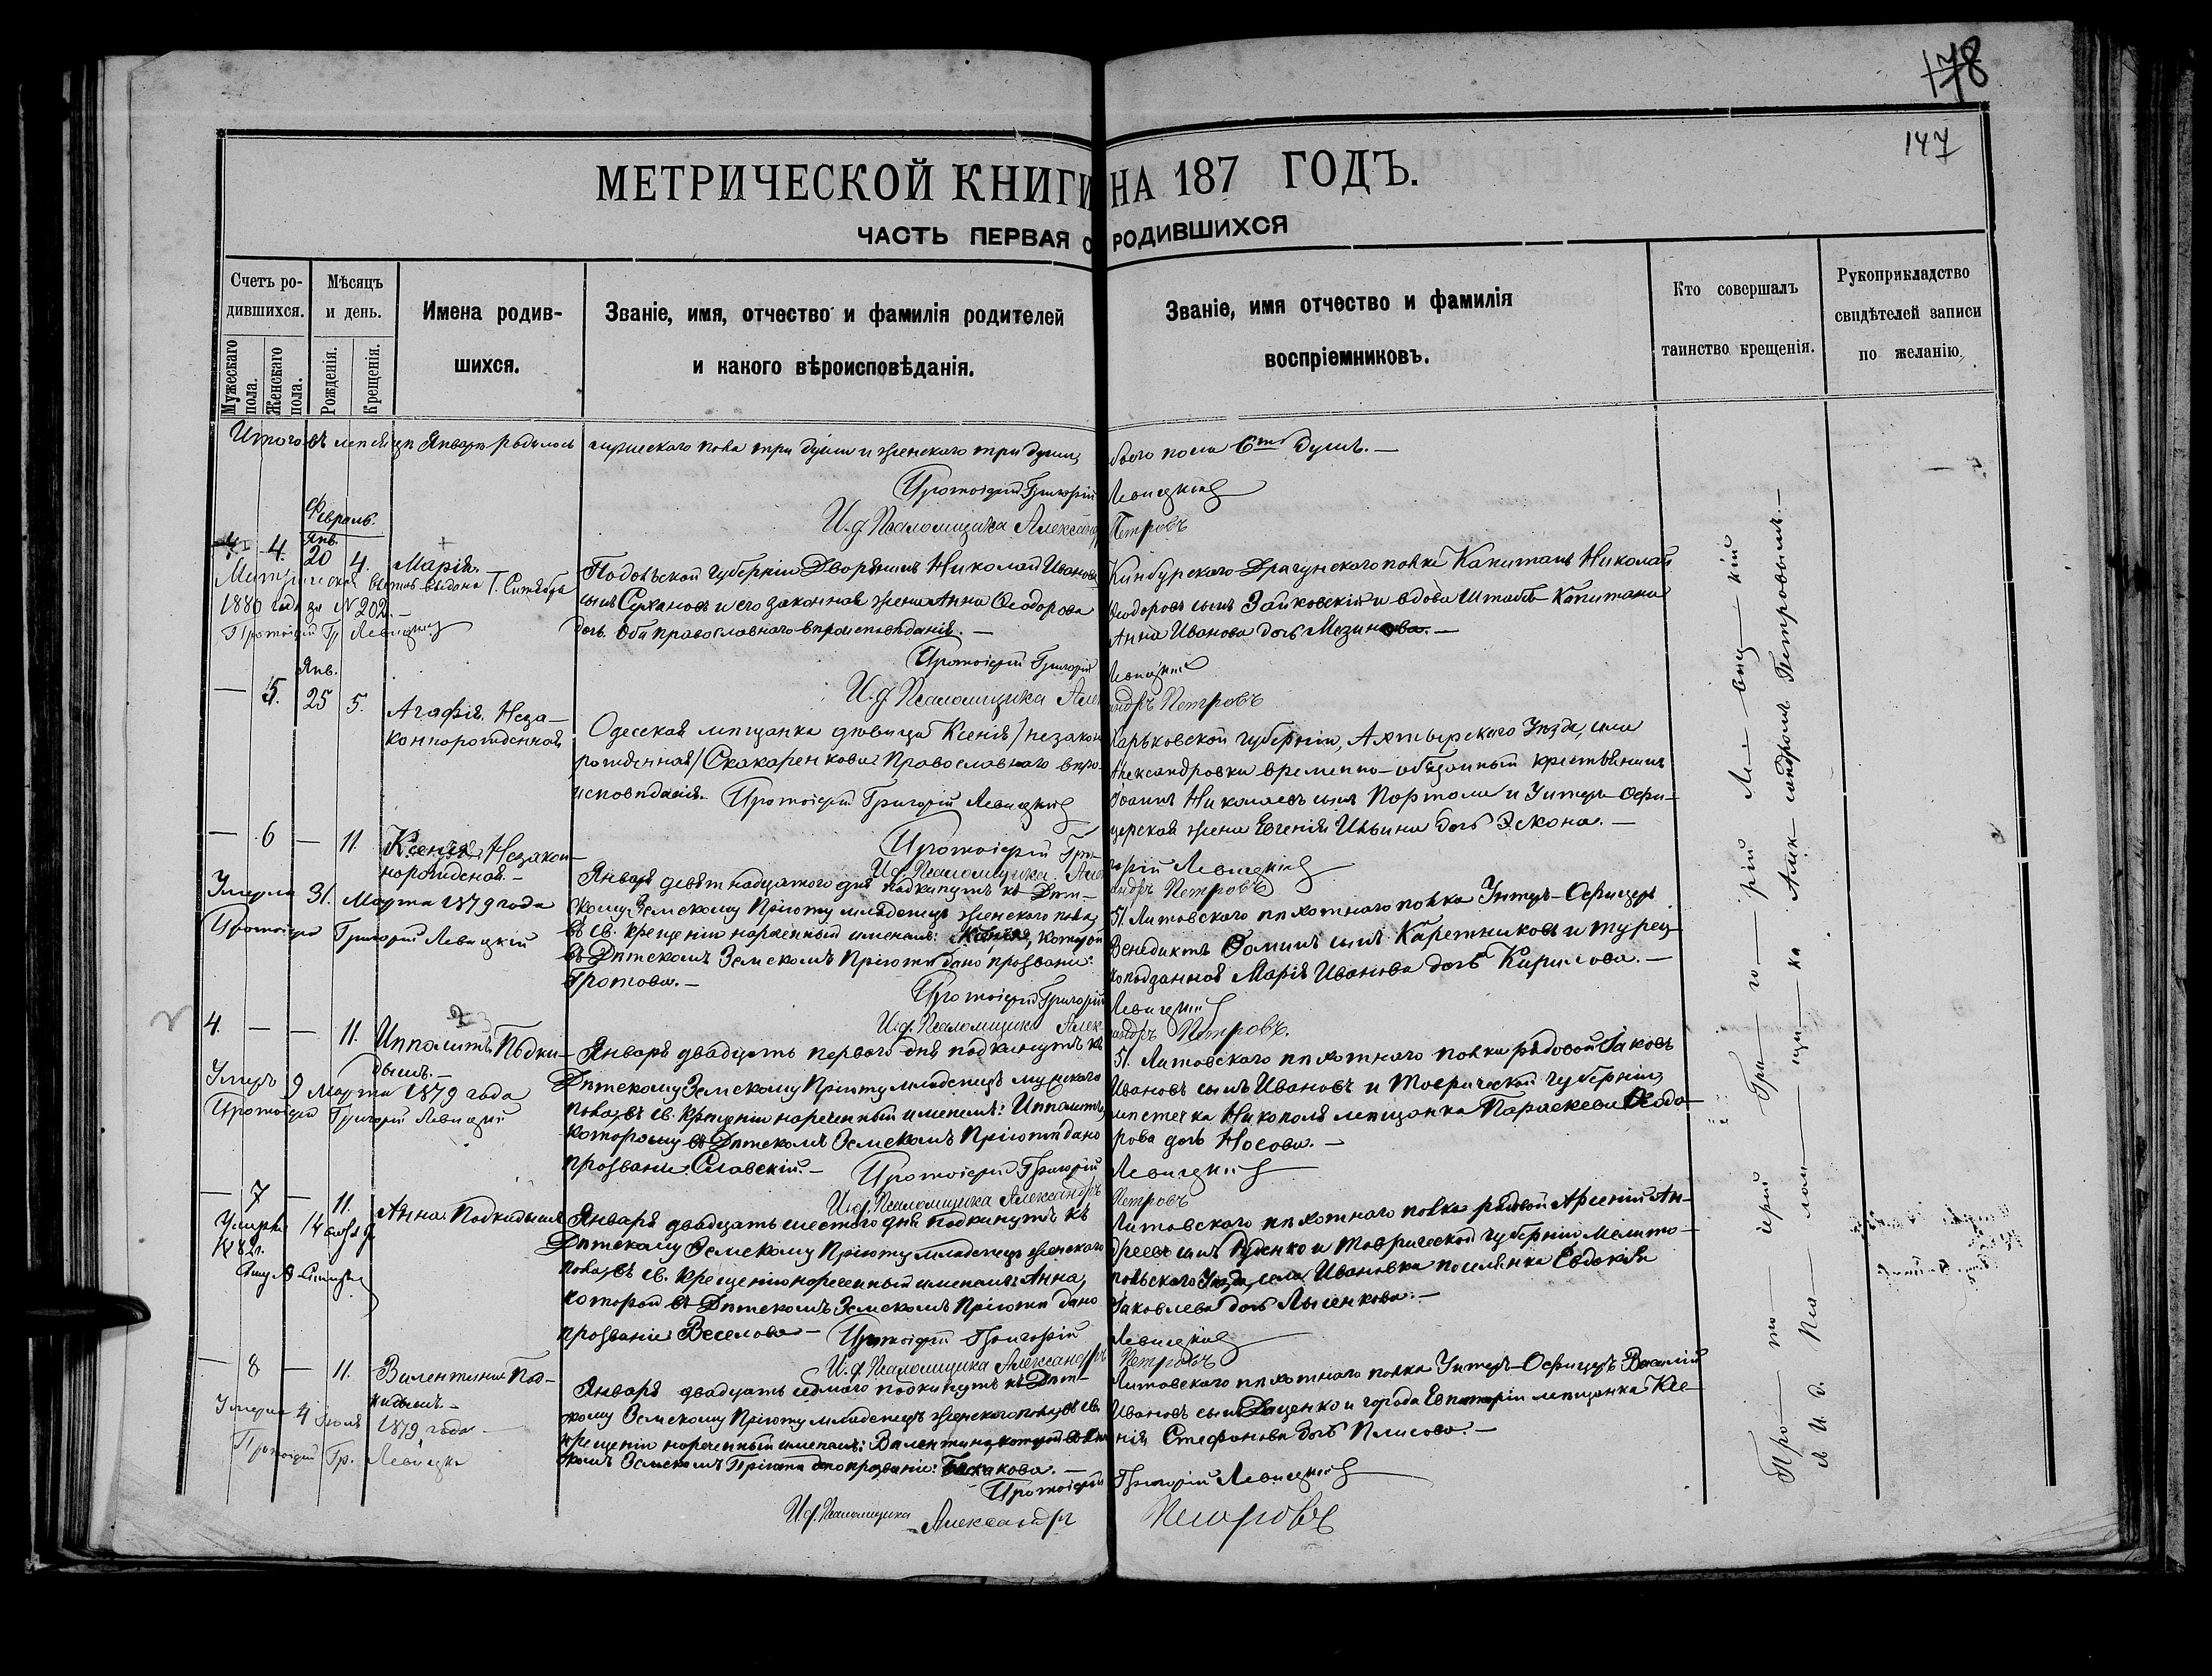 178
147
МЕТРИЧЕСКОЙ КНИГИ НА 187 ГОДЪ.
ЧАСТЬ ПЕРВАЯ О РОДИВШИХСЯ
Счетъ ро-
дившихся.
Мужескаго
пола.
Женскаго
пола.
Мѣсяцъ
и день.
Рожденія.
Крещенія.
Имена родив-
шихся.
Званіе, имя, отчество и фамилія родителей
и какого вѣроисповѣданія.
Званіе, имя отчество и фамилія
воспріемниковъ.
Кто совершалъ
таинство крещенія.
Рукоприкладство
свидѣтелей записи
по желанію.
Итого въ мѣсяцѣ Январѣ родилось мужескаго пола три души и женскаго три души, обоего пола 6ть душъ. —
Протоіерей Григорій Левицкій
И. д. Псаломщика Александръ Петровъ
Февраль.
4. Янв. 20 4. Марія.
1880 года за № 202. —
Протоіерей Гр. Левицкій
Подольской губерніи Дворянинъ Николай Ивановъ
сынъ Сухановъ и его законная жена Анна Ѳеодорова
дочь. Оба православнаго вѣроисповѣданія. —
Кинбурскаго Драгунскаго полка Капитанъ Николай
Ѳеодоровъ сынъ Зайковскій и вдова Штабсъ-Капитана
Анна Иванова дочь Мезинова. —
Протоіерей Григорій Левицкій
И. д. Псаломщика Александръ Петровъ
— 5. Янв. 25 5. Агафія. Неза-
коннорожденная
Одесская мѣщанка дѣвица Ксенія /незакон
рожденная/ Скакаренкова Православнаго вѣро-
исповѣданія. Протоіерей Григорій Левицкій
Харьковской губерніи, Ахтырскаго Уѣзда, села
Александровки временно-обязанный крестьянинъ
Іоаннъ Николаевъ сынъ и Унтеръ-Офи-
церская жена Евгенія Ильина дочь —
Протоіерей Григорій Левицкій
И. д. Псаломщика Александръ Петровъ
— 6 — 11. Ксенія. Незакон-
норожденная. —
Умерла 31. Марта 1879 года
Протоіерей Григорій Левицкій
Января девятнадцатого дня подкинутъ къ Дѣт-
скому Земскому Пріюту младенецъ женскаго пола,
въ св. крещеніи нареченный именемъ: Ксенія, которой
въ Дѣтскомъ Земскомъ Пріютѣ дано прозваніе:
Громова. —
51. Литовскаго пѣхотнаго полка Унтеръ-Офицеръ
Венедиктъ Ѳоминъ сынъ Каретниковъ и турец-
коподданная Марія Иванова дочь Кирилова. —
Протоіерей Григорій Левицкій
И. д. Псаломщика Александръ Петровъ.
4. — — 11. Ипполитъ. Подки-
дышъ. —
Умеръ 9 Марта 1879 года
Протоіерей Григорій Левицкій
Января двадцать перваго дня подкинутъ къ
Дѣтскому Земскому Пріюту младенецъ мужскаго
пола, въ св. крещеніи нареченный именемъ: Ипполитъ,
которому въ Дѣтскомъ Земскомъ Пріютѣ дано
прозваніе: Славскій. —
51. Литовскаго пѣхотнаго полка рядовой Іаковъ
Ивановъ сынъ Ивановъ и Таврической губерніи,
мѣстечка Никополя мѣщанка Параскева Ѳеодо-
рова дочь Носова. —
Протоіерей Григорій Левицкій
И. д. Псаломщика Александръ Петровъ
— 7 — 11. Анна. Подкидышъ
Умерла 14
1882г.
Января двадцать шестого дня подкинутъ къ
Дѣтскому Земскому Пріюту младенецъ женскаго
пола, въ св. крещеніи нареченный именемъ: Анна,
которой въ Дѣтскомъ Земскомъ Пріютѣ дано
прозваніе: Веселова —
Литовскаго пѣхотнаго полка рядовой Арсеній Ан-
дреевъ сынъ и Таврической губерніи Мелито-
польскаго Уѣзда, села Ивановка поселянка Евдокія
Іаковлева дочь Лысенкова. —
Протоіерей Григорій Левицкій
И. д. Псаломщика Александръ Петровъ
— 8 — 11. Валентина Под-
кидышъ. —
Умерла 4 Іюля
1879 года —
Протоіерей Гр. Левицкій
Января двадцать седмаго подкинутъ къ Дѣт-
скому Земскому Пріюту младенецъ женскаго пола, въ св.
крещеніи нареченный именемъ: Валентина, которой въ Дѣт-
скомъ Земскомъ Пріютѣ дано прозваніе: —
Литовскаго пѣхотнаго полка Унтеръ-Офицеръ Василій
Ивановъ сынъ Даценко и города Евпаторіи мѣщанка Ксе-
нія Стефанова дочь Плисова. —
Протоіерей Григорій Левицкій
И. д. Псаломщика Александръ Петровъ
Про — то — іерей Гри — го — рій Ле — виц — кій
и И. д. Пса — лом — щи — ка Алек — сандромъ Петровымъ. —